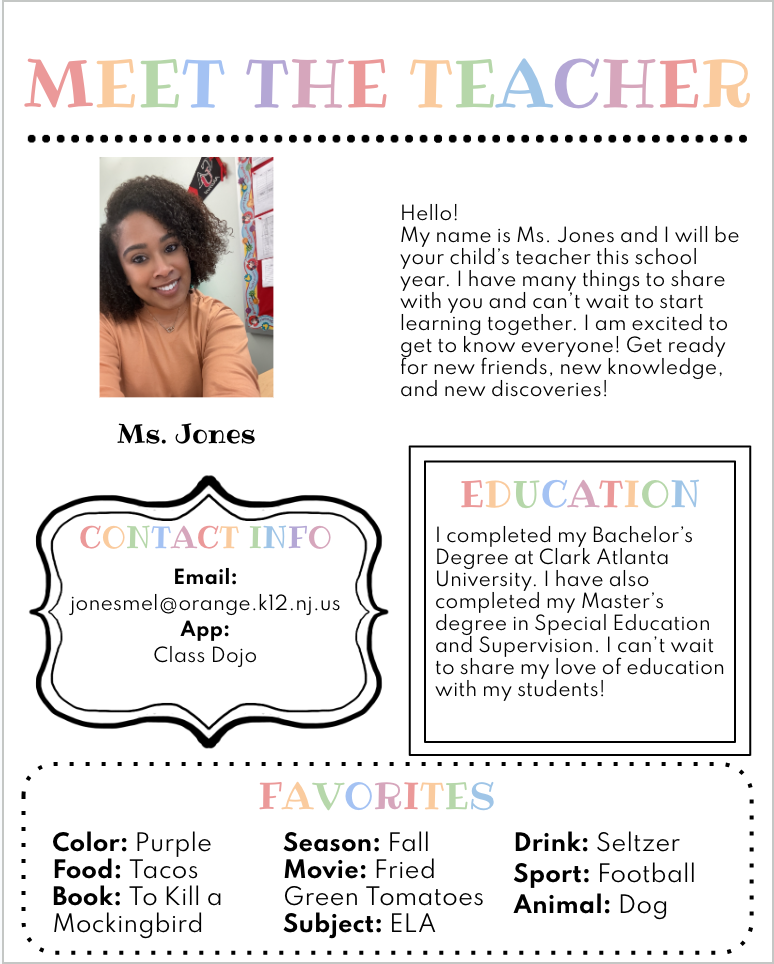 MEET THE TEACHER
Hello!
My name is Ms. Jones and I will be
your child's teacher this school
year. I have many things to share
with you and can't wait to start
learning together. I am excited to
get to know everyone! Get ready
for new friends, new knowledge,
and new discoveries!
Ms. Jones
CONTACT INFO
Email:
jonesmel@orange.k12.nj.us
App:
Class Dojo
EDUCATION
I completed my Bachelor's
Degree at Clark Atlanta
University. I have also
completed my Master's
degree in Special Education
and Supervision. I can't wait
to share my love of education
with my students!
FAVORITES
Color: Purple
Food: Tacos
Book: To Kill a
Mockingbird
Season: Fall
Movie: Fried
Green Tomatoes
Subject: ELA
Drink: Seltzer
Sport: Football
Animal: Dog